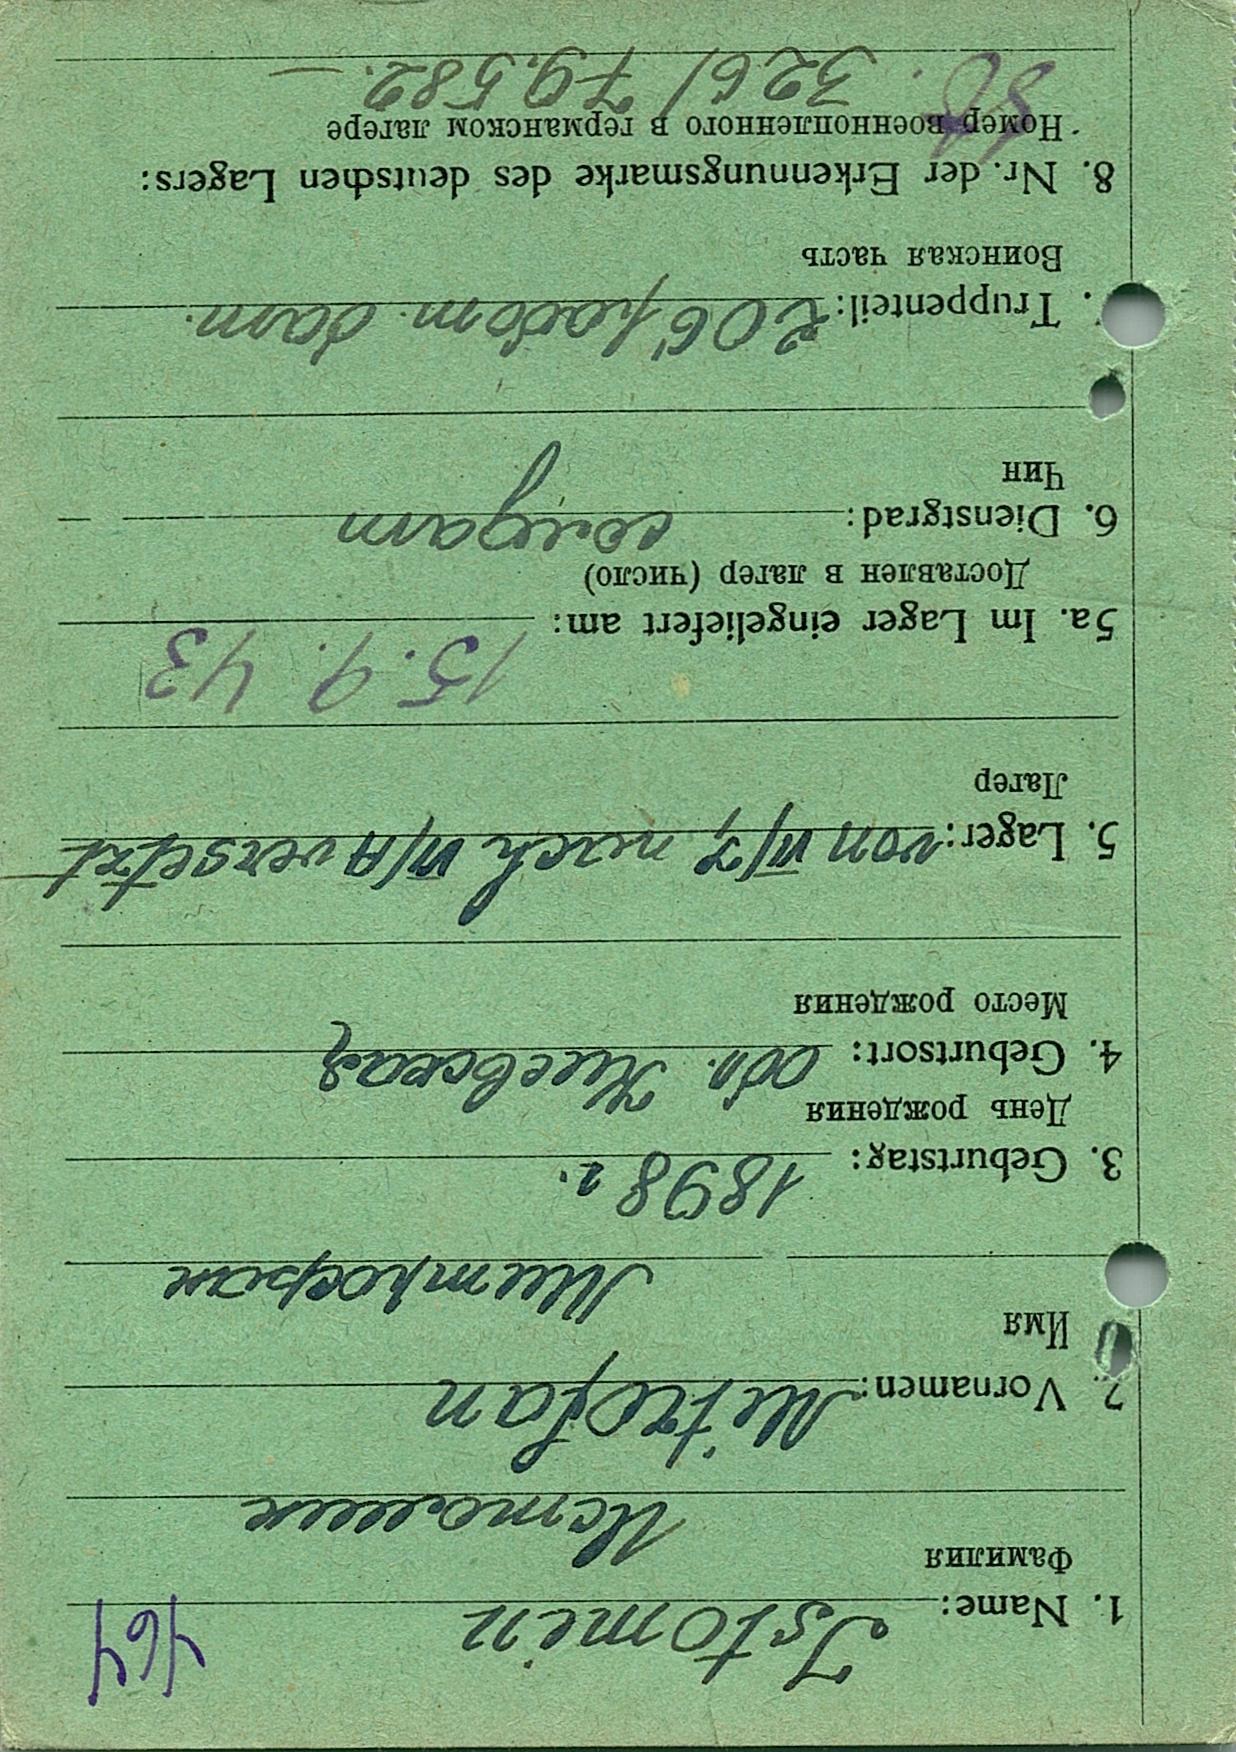 464
1. Name: Istomin
Фамилия
Истомин
2. Vornamen: Mitrofan
Имя
Митрофан
3. Geburtstag: 1898 г.
День рождения
4. Geburtsort: обл. Киевская
Место рождения
5. Lager: von VI/ nach VI/A versetzt
Лагер
5a. Im Lager eingeliefert am: 15. 9. 43
Доставлен в лагер (число)
6. Dienstgrad: солдат
Чин
. Truppenteil: 206 работ. бат.
Воинская часть
8. Nr. der Erkennungsmarke des deutschen Lagers:
Номер военнопленного в германском лагере
326/ 79.582.